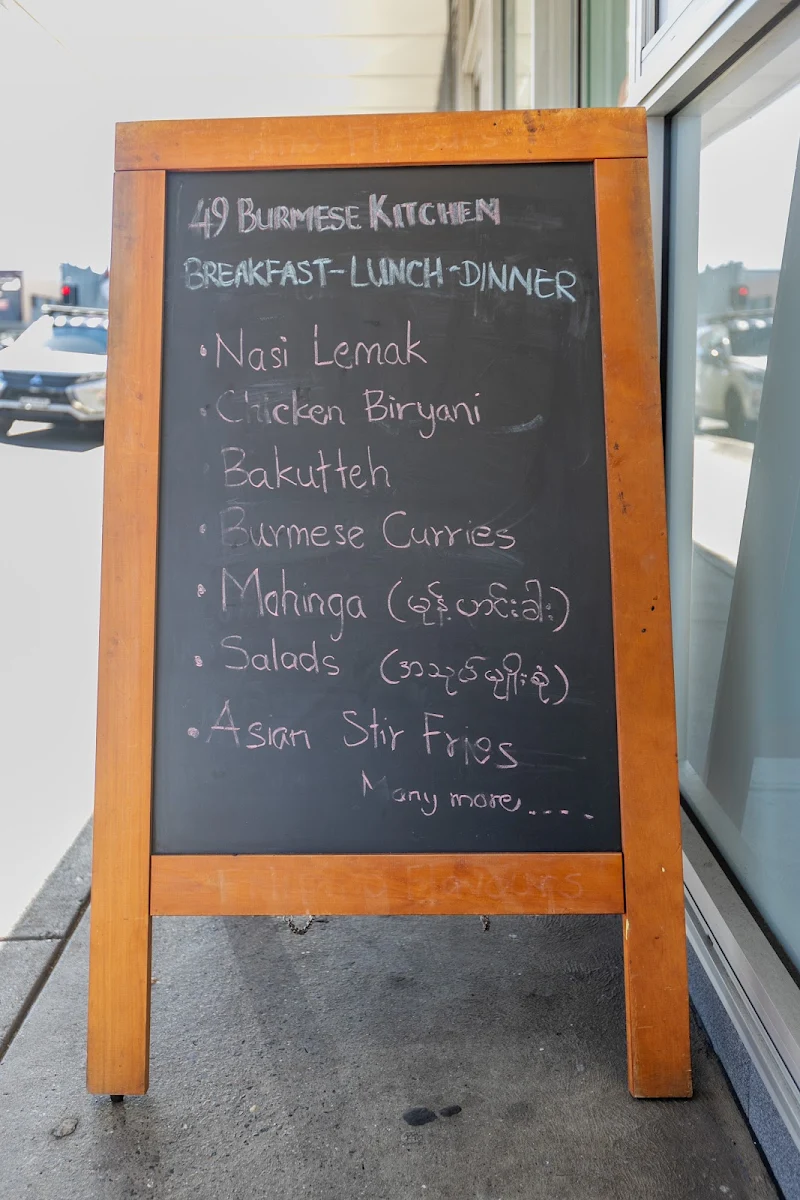 49 BURMESE KITCHEN
BREAKFAST-LUNCH-DINNER
• Nasi Lemak
• Chicken Biryani
Bakutteh
• Burmese Curries
• Mohinga (မုန့်ဟင်းခါး)
• Salads (အသုပ်မျိုးစုံ)
• Asian Stir Fries
Many more.....